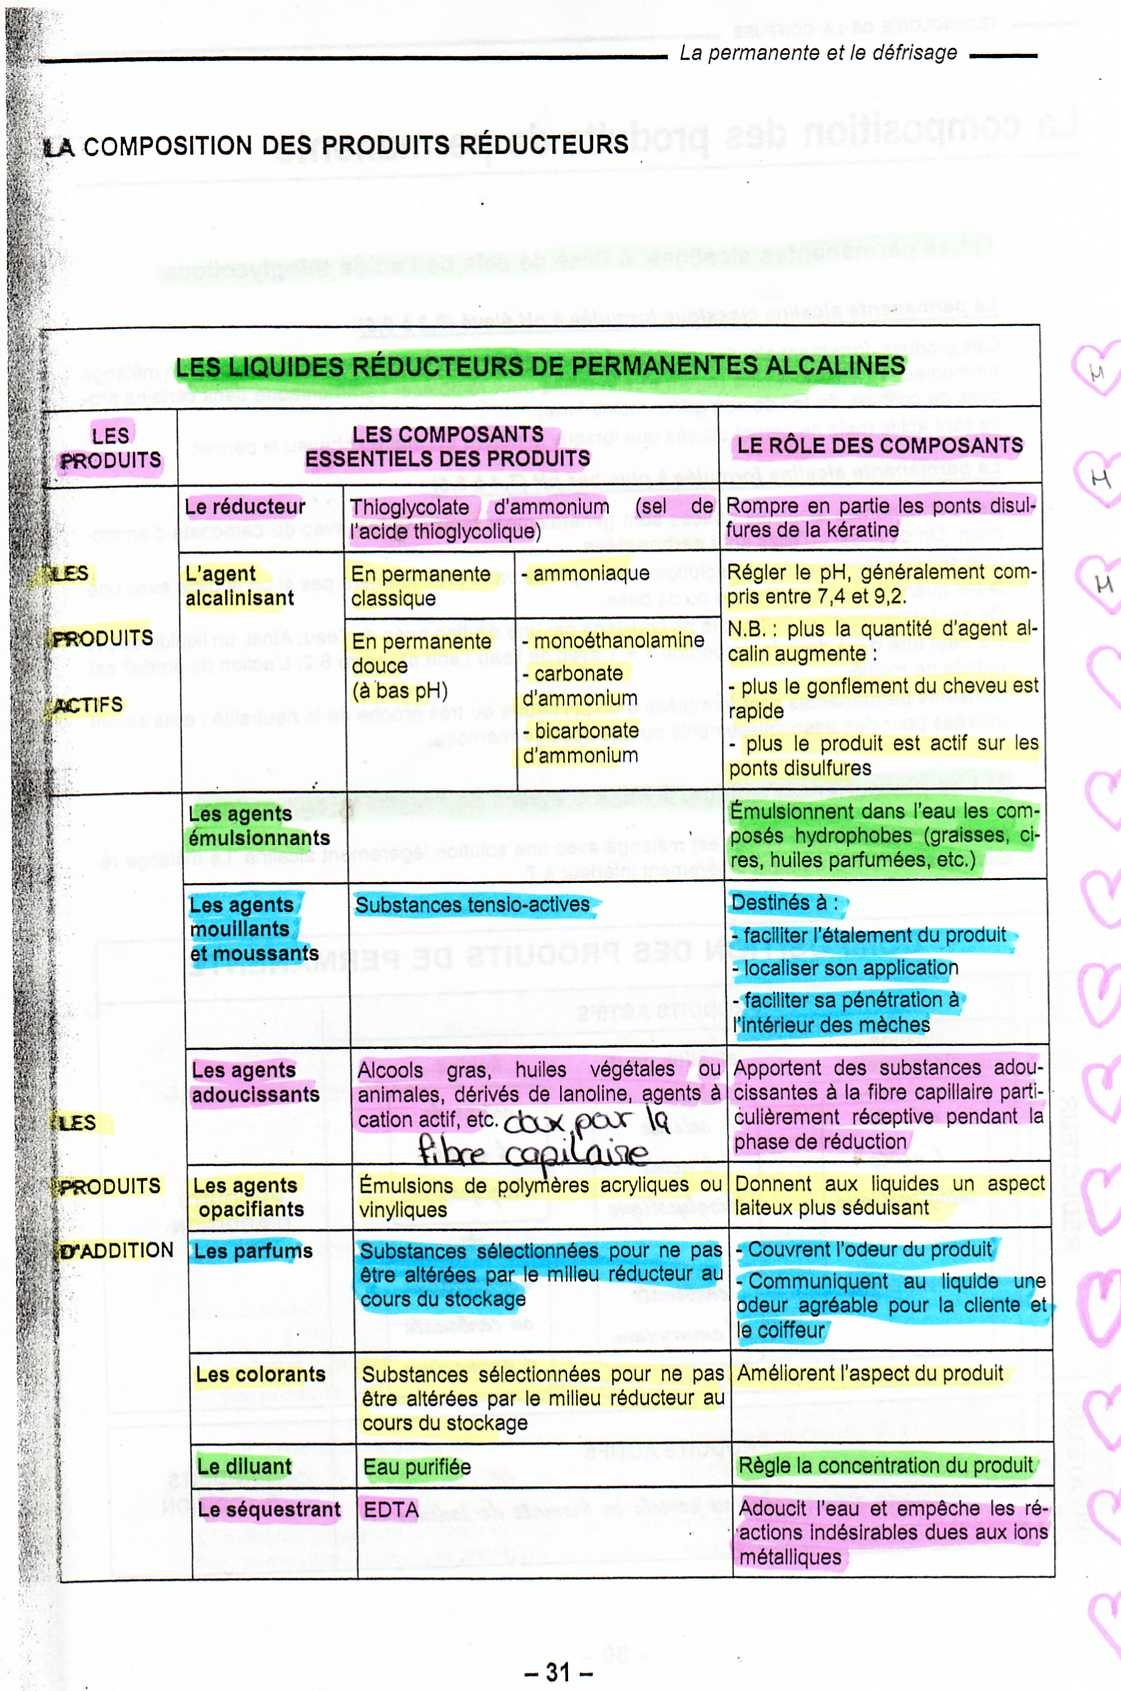 La permanente et le défrisage
LA COMPOSITION DES PRODUITS RÉDUCTEURS
LES LIQUIDES RÉDUCTEURS DE PERMANENTES ALCALINES
LES
PRODUITS
LES COMPOSANTS
ESSENTIELS DES PRODUITS
LE RÔLE DES COMPOSANTS
LES
PRODUITS
ACTIFS
Le réducteur
Thioglycolate d'ammonium (sel de
l'acide thioglycolique)
Rompre en partie les ponts disul-
fures de la kératine
L'agent
alcalinisant
En permanente
classique
- ammoniaque
En permanente
douce
(à bas pH)
- monoéthanolamine
- carbonate
d'ammonium
- bicarbonate
d'ammonium
Régler le pH, généralement com-
pris entre 7,4 et 9,2.
N.B. : plus la quantité d'agent al-
calin augmente :
- plus le gonflement du cheveu est
rapide
- plus le produit est actif sur les
ponts disulfures
LES
PRODUITS
D'ADDITION
Les agents
émulsionnants
Émulsionnent dans l'eau les com-
posés hydrophobes (graisses, ci-
res, huiles parfumées, etc.)
Les agents
mouillants
et moussants
Substances tensio-actives
Destinés à :
- faciliter l'étalement du produit
- localiser son application
- faciliter sa pénétration à
l'intérieur des mèches
Les agents
adoucissants
Alcools gras, huiles végétales ou
animales, dérivés de lanoline, agents à
cation actif, etc. doux pour la
fibre capilaire
Apportent des substances adou-
cissantes à la fibre capillaire parti-
culièrement réceptive pendant la
phase de réduction
Les agents
opacifiants
Émulsions de polymères acryliques ou
vinyliques
Donnent aux liquides un aspect
laiteux plus séduisant
Les parfums
Substances sélectionnées pour ne pas
être altérées par le milieu réducteur au
cours du stockage
- Couvrent l'odeur du produit
- Communiquent au liquide une
odeur agréable pour la cliente et
le coiffeur
Les colorants
Substances sélectionnées pour ne pas
être altérées par le milieu réducteur au
cours du stockage
Améliorent l'aspect du produit
Le diluant
Eau purifiée
Règle la concentration du produit
Le séquestrant
EDTA
Adoucit l'eau et empêche les ré-
actions indésirables dues aux ions
métalliques
M
M
M
– 31 –